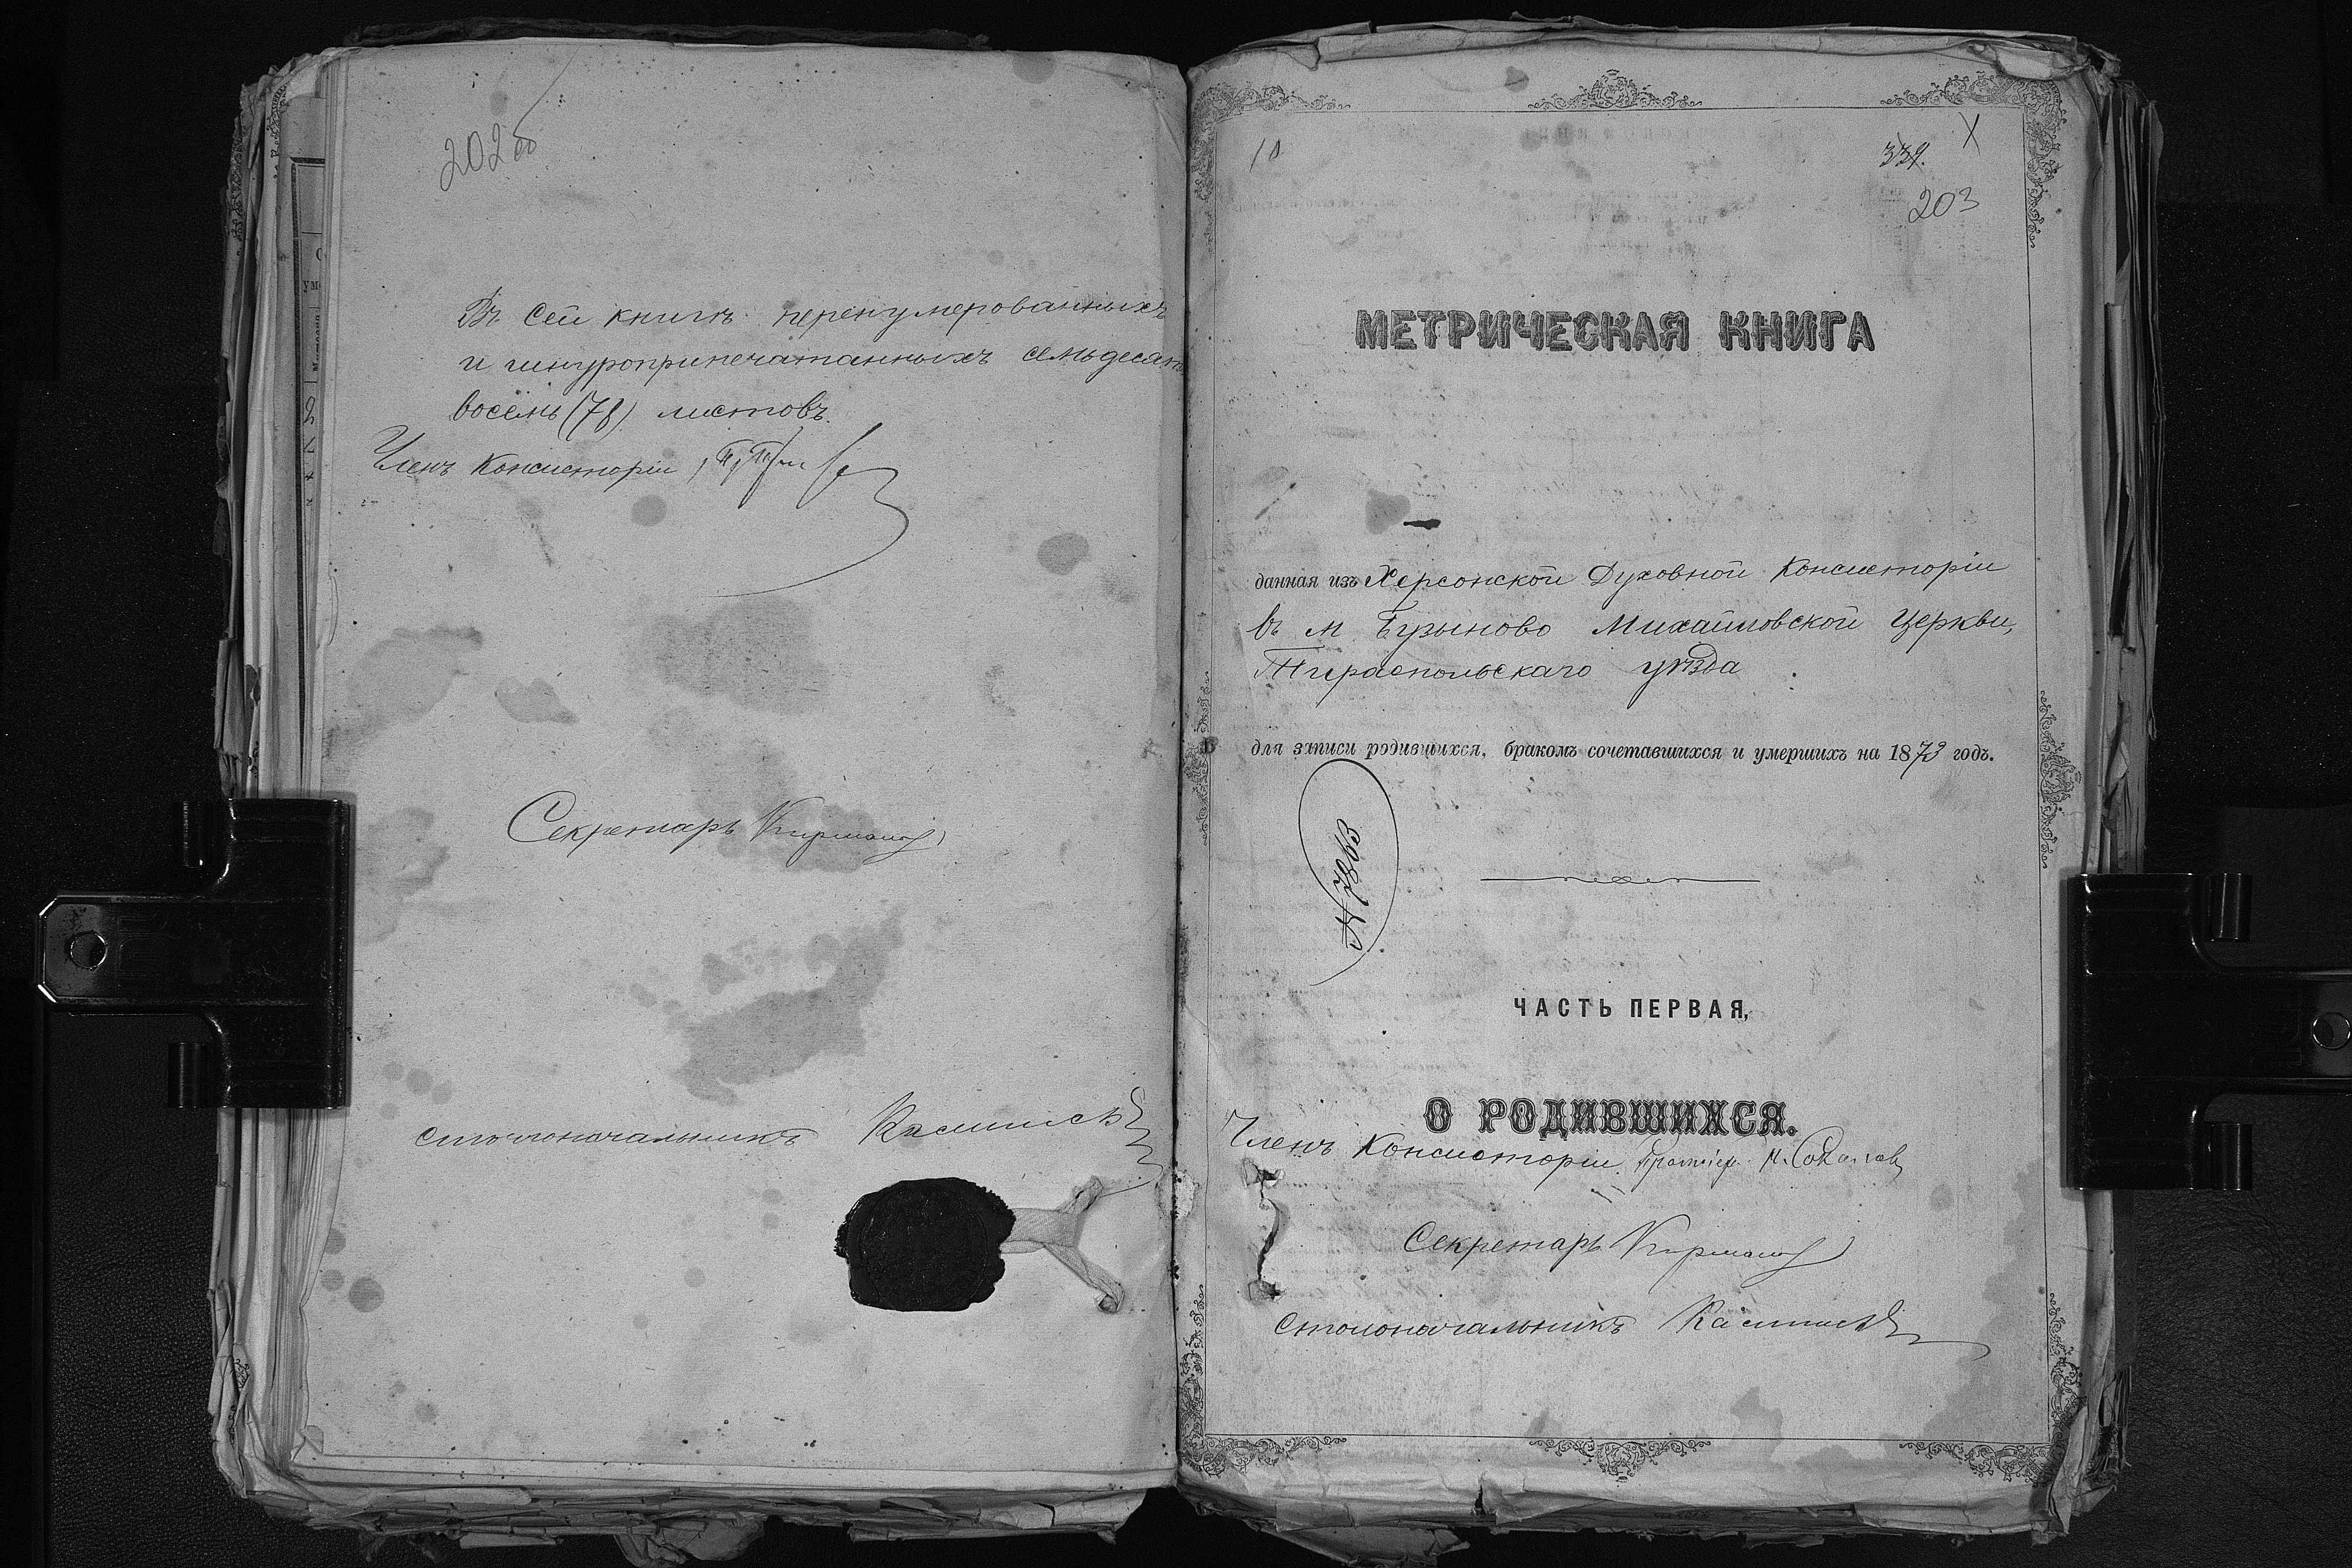 202об
Въ сей книгѣ перенумерованныхъ
и шнуроприпечатанныхъ семьдесятъ
восемь (78) листовъ.
Членъ Консисторіи
Секретарь
столоначальникъ
10
339.
X
203
МЕТРИЧЕСКАЯ КНИГА
данная изъ Херсонской Духовной Консисторіи
въ м Бузыново Михайловской Церкви,
Тираспольскаго уѣзда
для записи родившихся, бракомъ сочетавшихся и умершихъ на 1873 годъ.
№ 7863
ЧАСТЬ ПЕРВАЯ,
О РОДИВШИХСЯ.
Членъ Консисторіи
Секретарь
столоначальникъ